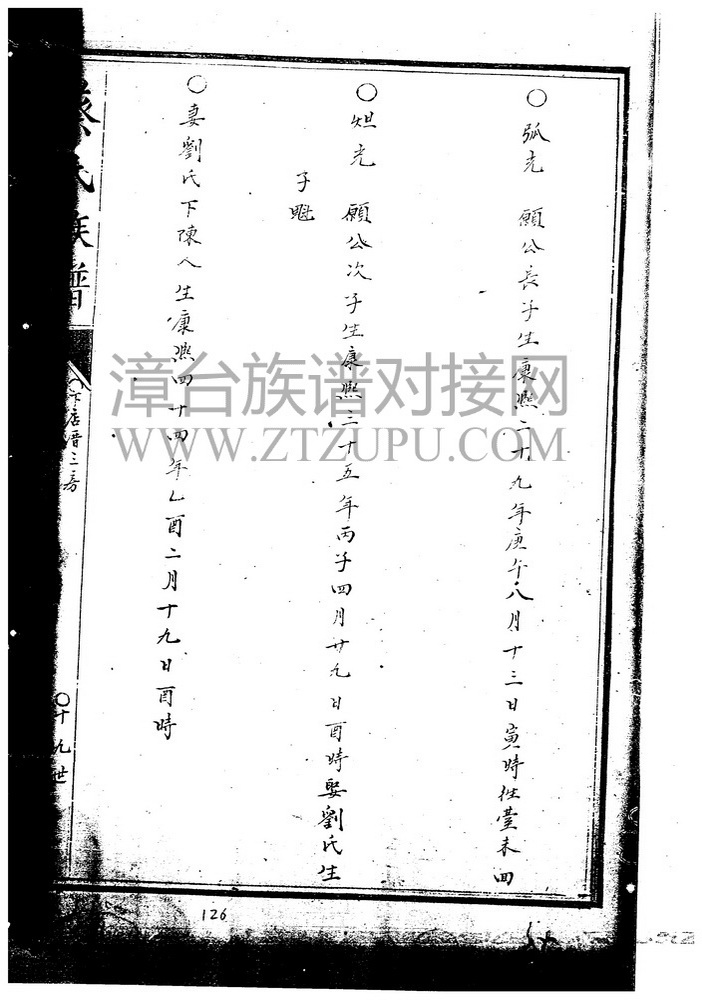 ○弧光 願公長子生康熙二十九年庚午八月十三日寅時往臺未回
○炟光 願公次子生康熙三十五年丙子四月廿九日酉時娶劉氏生
子
○妻劉氏下陳人生康熙四十四年乙酉二月十九日酉時
氏族譜
店晋三房
○十九世
126
漳台族谱对接网
WWW.ZTZUPU.COM